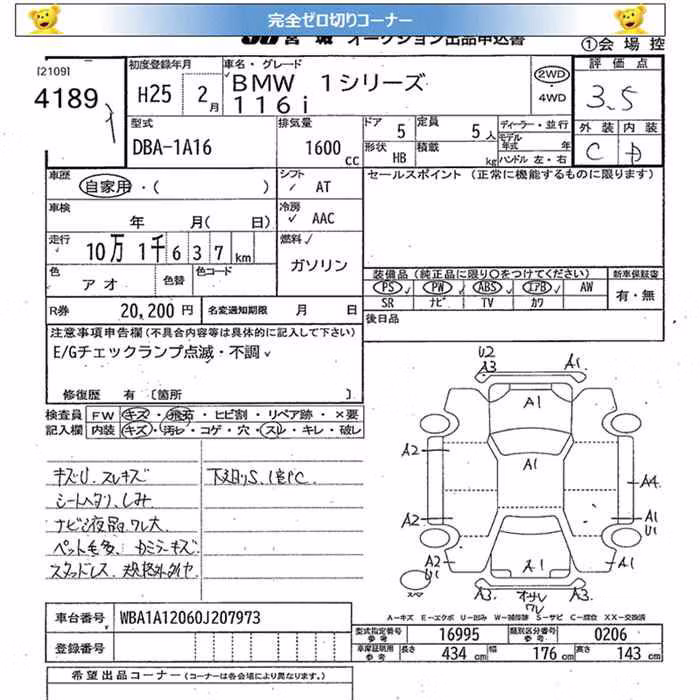 完全ゼロ切りコーナー
JU 宮城 オークション出品申込書 ①会場控
[2109]
4189
初度登録年月 H25 2月
車名・グレード
BMW 1シリーズ
116i
2WD ・ 4WD
評価点
3.5
外装 内装
C D
型式 DBA-1A16
排気量 1600 cc
ドア 5 定員 5人
形状 HB 積載 kg
ディーラー・並行
モデル年式 年
ハンドル 左・右
車歴 自家用・( )
シフト ✓ AT
セールスポイント (正常に機能するものに限ります)
車検 年 月( 日)
冷房 ✓ AAC
走行 10万1千637km
燃料✓ ガソリン
色 アオ 色替 色コード
装備品(純正品に限り○をつけてください) 新車保証書
PS✓ PW✓ ABS✓ エアB✓ AW 有・無
SR ナビ TV カワ
R券 20,200円 名変通知期限 月 日
後日品
注意事項申告欄(不具合内容等は具体的に記入して下さい)
E/Gチェックランプ点滅・不調✓
修復歴 有 [箇所 ]
検査員 FW キズ・飛石・ヒビ割・リペア跡・×要
記入欄 内装 キズ・汚レ・コゲ・穴・スレ・キレ・破レ
キズU.スレキズ
シートヘタリ.しみ
ナビ液晶ワレ大
ペット毛多.カミラーキズ
スタッドレス.規格外タイヤ
下廻りS.
U2
A3 A1
A1
A2 A1 A4
A2 A1
U1
A2
U1 A1 A1
A3 オサレ A3
ワレ
A-キズ E-エクボ U-凹み W-補修跡 S-サビ C-腐食 XX-交換済
車台番号 WBA1A12060J207973
登録番号
型式指定番号参考 16995 類別区分番号参考 0206
車庫証明用参考 長さ 434 cm 幅 176 cm 高さ 143 cm
希望出品コーナー (コーナーは各会場により異なります。)